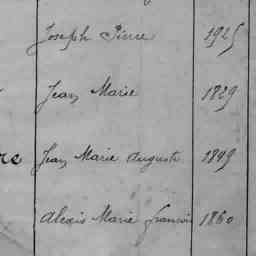 Joseph Pierre 1925
Jean Marie 1829
re Jean Marie Auguste 1849
Alexis Marie françois 1860